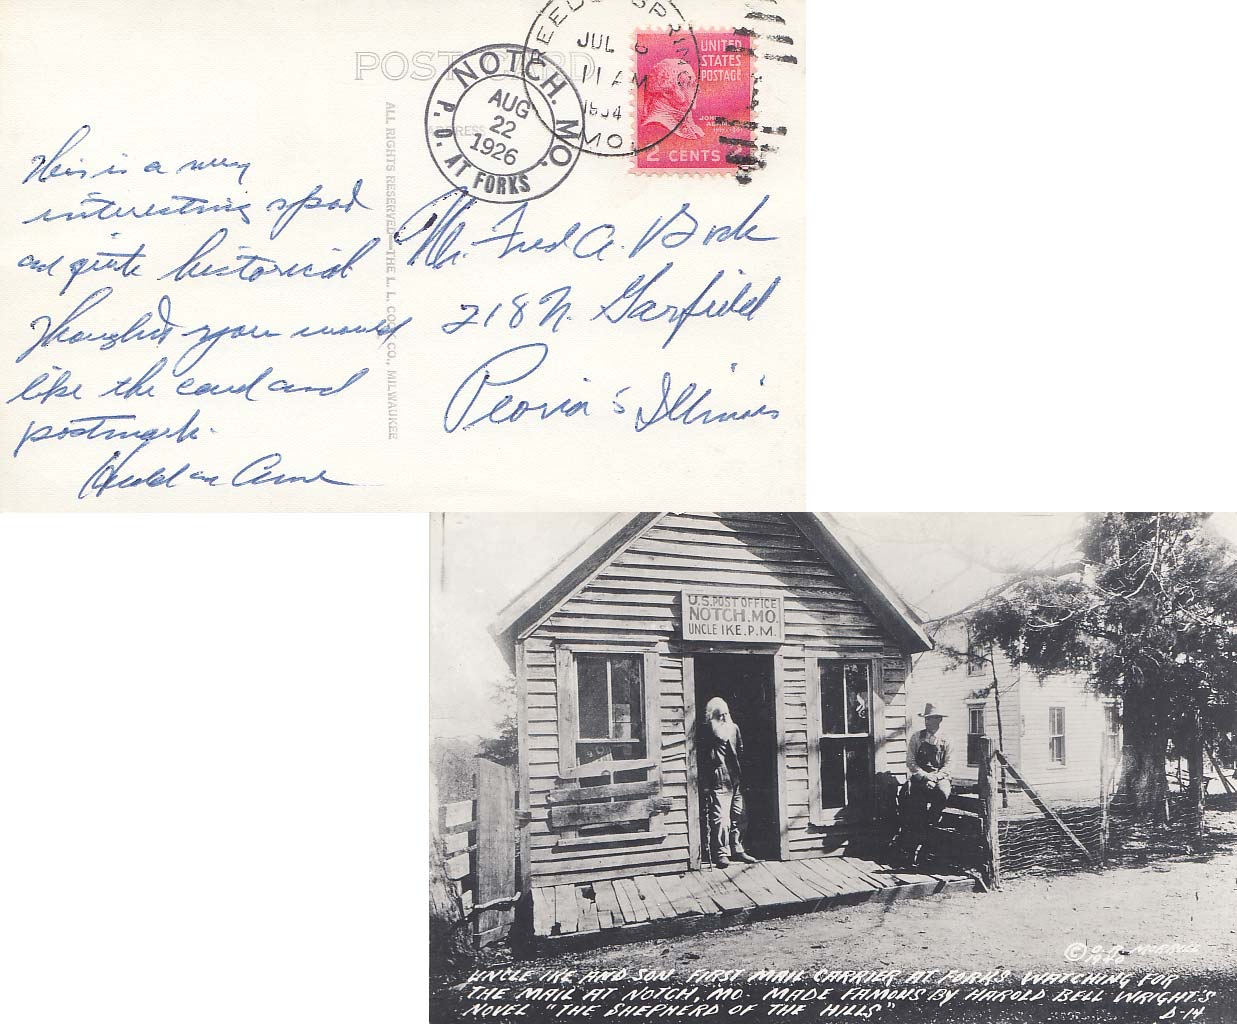 POST CARD
ADDRESS
NOTCH. MO.
AUG
22
1926
P. O. AT FORKS
REEDS SPRING
JUL 6
11 AM
1954
MO.
UNITED
STATES
POSTAGE
JOHN ADAMS
2 CENTS 2
ALL RIGHTS RESERVED—THE L. L. COOK CO., MILWAUKEE
This is a very
interesting spot
and quite historical
Thought you would
like the card and
postmark.
Mr. Fred A. Bock
218 N. Garfield
Peoria 5 Illinois
U.S. POST OFFICE
NOTCH. MO.
UNCLE IKE. P.M.
© MORRILL
UNCLE IKE AND SON FIRST MAIL CARRIER AT FORKS WATCHING FOR
THE MAIL AT NOTCH, MO. MADE FAMOUS BY HAROLD BELL WRIGHT'S
NOVEL "THE SHEPHERD OF THE HILLS"
D-14